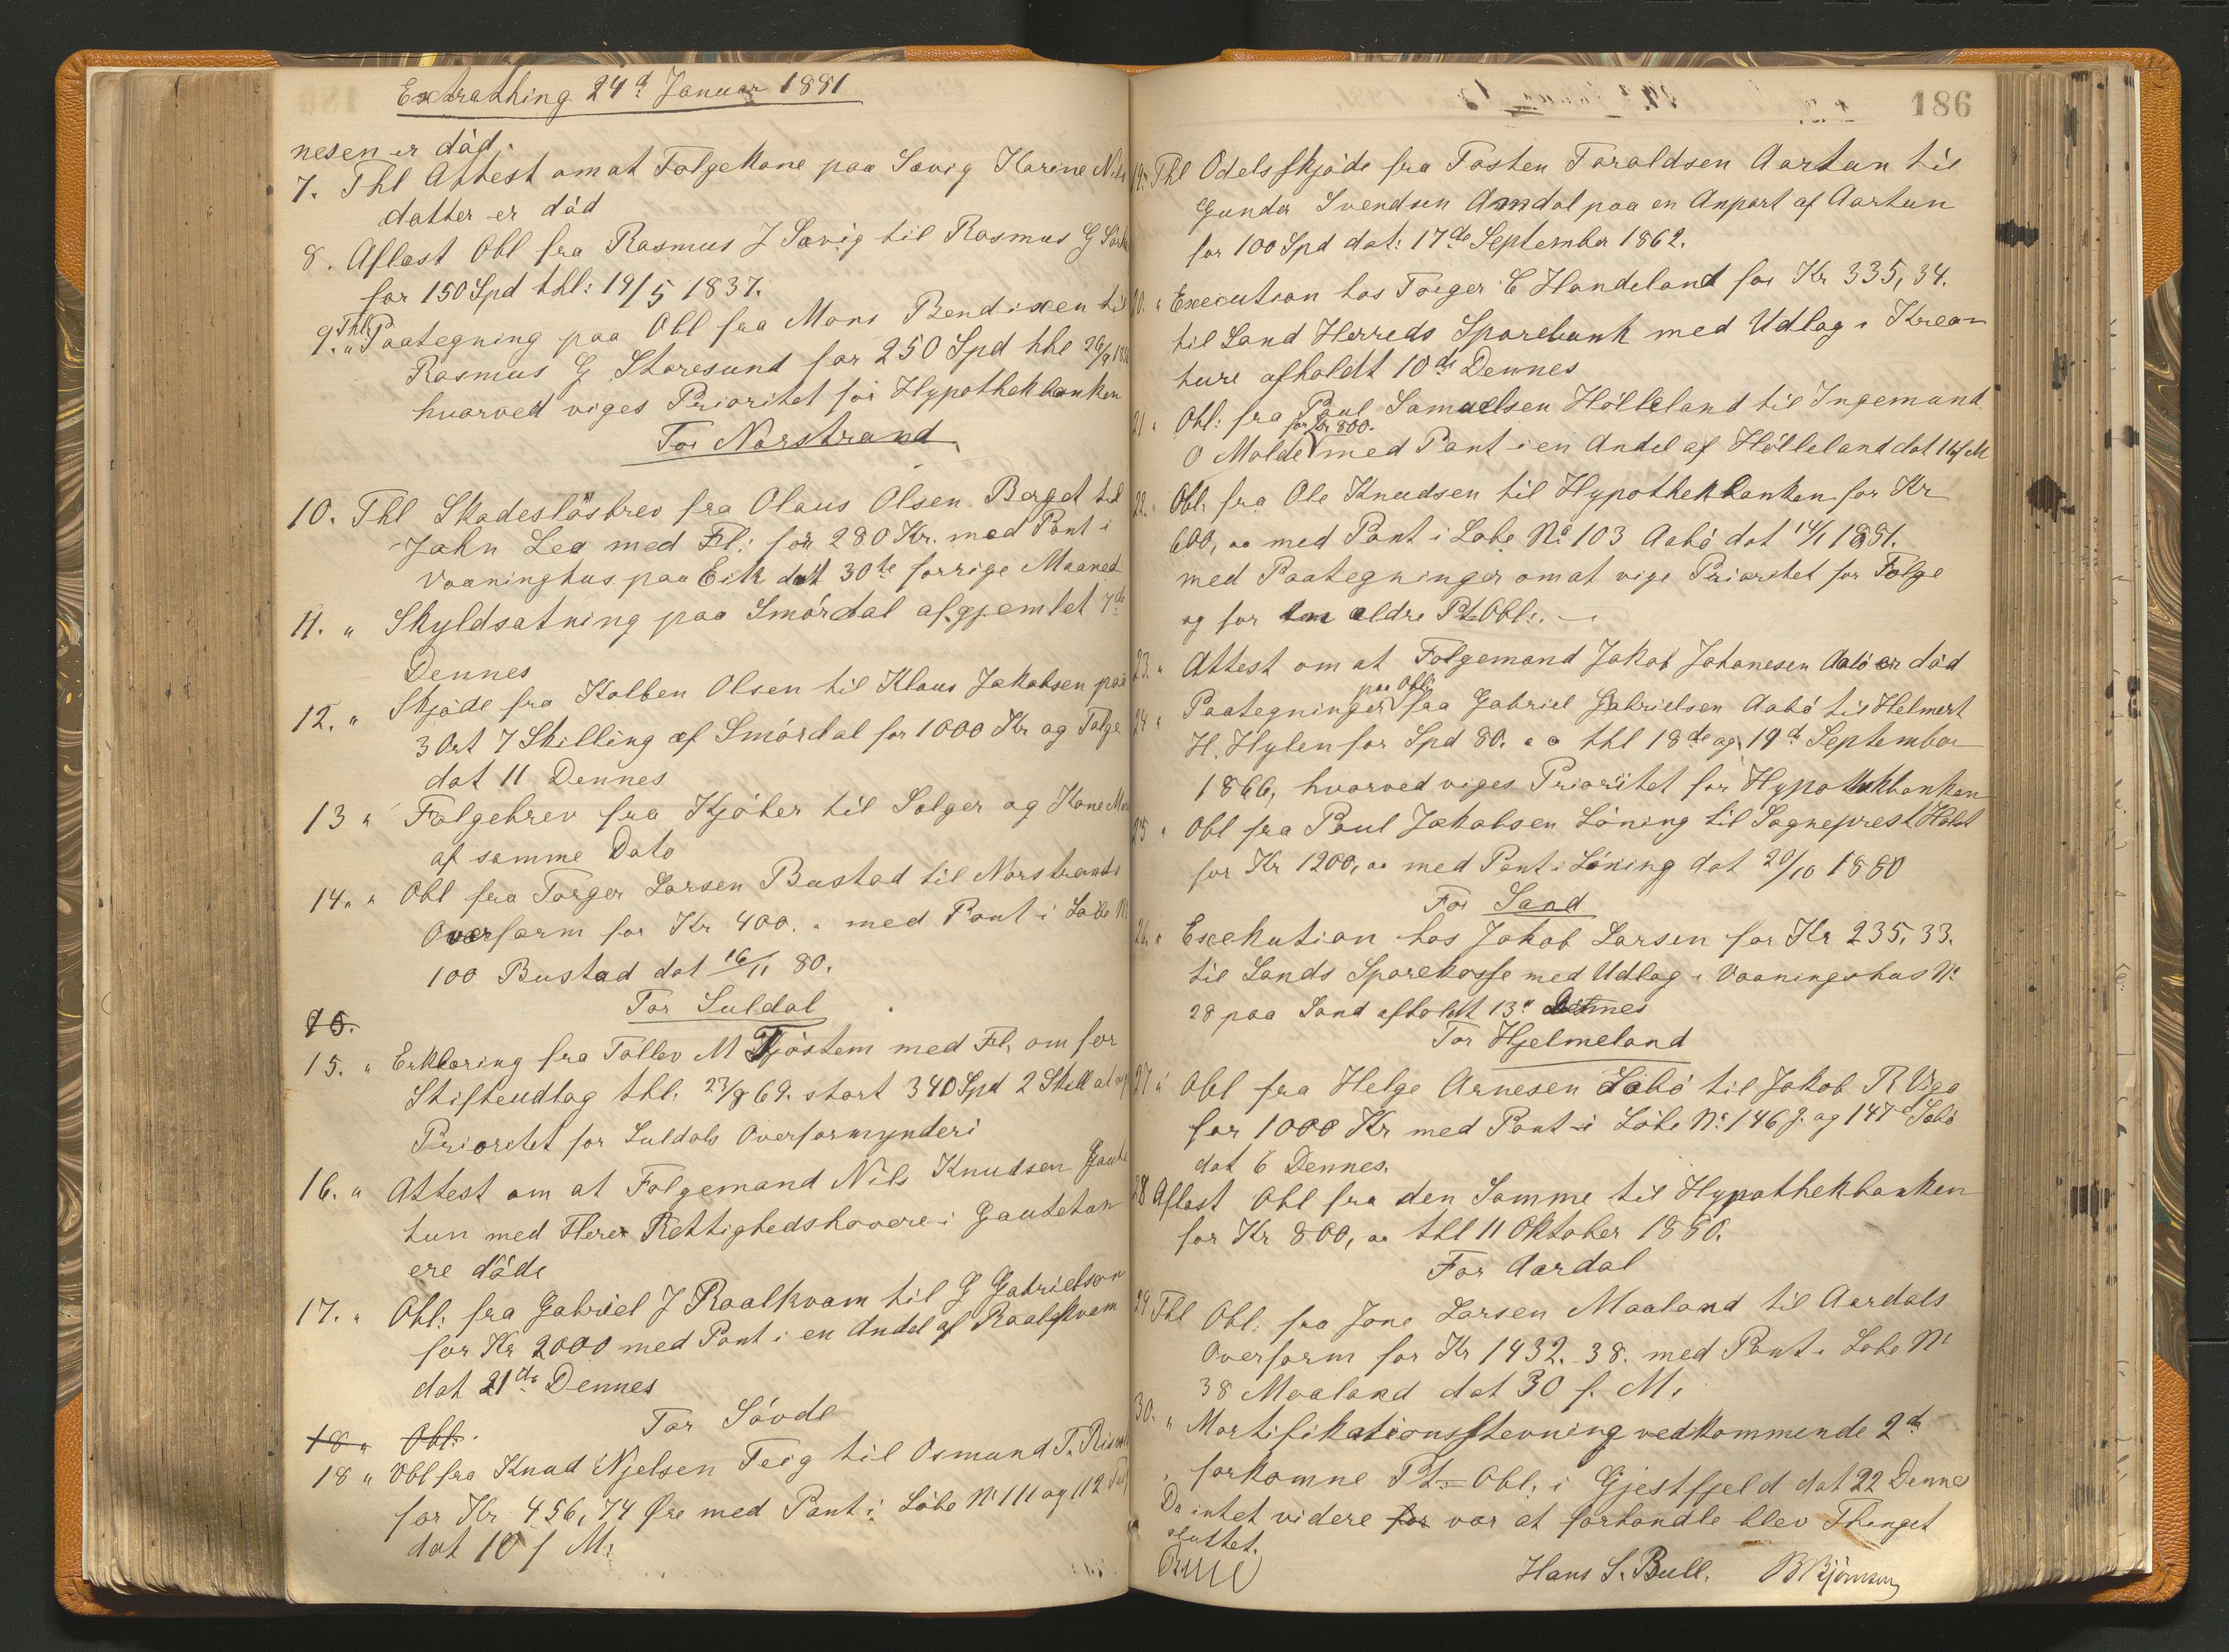 Extrathing 24d Januar 1881
nesen er død.
7. Thl Attest om at Folgekone paa Søvig Karine Nils
datter er død
8. Aflæst Obl fra Rasmus J Søvig til Rasmus G
for 150 Spd thl: 19/5 1837.
9. " Thl Paategning paa Obl fra Mons Bendixen til
Rasmus G Storesund for 250 Spd thl 26/9
hvorved viges Prioritet for Hypothekbanken
For Norstrand
10. Thl Skadesløsbrev fra Olaus Olsen Berget til
John Lea med Fl: for 280 Kr. med Pant i
Vaaninghus paa Eik dat 30te forrige Maaned
11. " Skyldsætning paa Smørdal afhjemlet 7de
Dennes
12. " Skjøde fra Kolben Olsen til Klaus Jakobsen paa
3 Ort 7 Skilling af Smørdal for 1000 Kr og Folge
dat 11 Dennes
13 " Folgebrev fra Kjøber til Sælger og Kone
af samme Dato
14. " Obl fra Torger Larsen Bustad til Norstrands
Overform for Kr 400. " med Pant i Løbe N
100 Bustad dat 16/11 80.
For Suldal
15.
15. " Erklæring fra Tollev M Tjøstem med Fl, om for
Skifteudlæg thl. 23/8 69. stort 340 Spd 2 Skill at
Prioritet for Suldals Overformynderi
16. " Attest om at Folgemand Nils Knudsen Gaute
tun med Flere Rettighedshavere i Gautetun
ere døde
17. " Obl: fra Gabriel J Raalkvam til G Gabrielsen
for Kr 2000 med Pant i en Andel af Raalkvam
dat 21de Dennes
For Søvde
18 " Obl:
18 " Obl fra Knud Njelsen Teig til Osmund T.
for Kr 456,74 Øre med Pant i Løbe No 111 og 112
dat 10 f M.
186
19. Thl Odelsskjøde fra Tosten Toraldsen Aartun til
Gunder Svendsen Amdal paa en Anpart af Aartun
for 100 Spd dat: 17de September 1862.
20. " Execution hos Torger E Handeland for Kr 335,34.
til Sand Herreds Sparebank med Udlæg i Krea-
ture afholdt 10de Dennes
21 " Obl: fra Poul Samuelsen Hølleland til Ingemund
O Molde for Kr 800. med Pant i en Andel af Hølleland dat 16 f M
22. " Obl. fra Ole Knudsen til Hypothekbanken for Kr
600, oo med Pant i Løbe No 103 Aabø dat 14/1 1881.
med Paategninger om at vige Prioritet for Folge
og for en ældre Pt Obl:.
23. " Attest om at Folgemand Jakob Johanesen Aabø er død
24 " Paategninger paa Obl: fra Gabriel Gabrielsen Aabø til Helmert
H. Hylen for Spd 80. oo thl 18de og 19de September
1866, hvorved viges Prioritet for Hypothekbanken
25 " Obl fra Poul Jakobsen Løning til Sogneprest Holst
for Kr 1200, oo med Pant i Løning dat 20/10 1880
For Sand
26. " Exekution hos Jakob Larsen for Kr 235,33.
til Sands Sparekasse med Udlæg i Vaaningshus No
28 paa Sand afholdt 13d Dennes
For Hjelmeland
27 " Obl fra Helge Arnesen Søbø til Jakob R Viga
for 1000 Kr med Pant i Løbe No 146 g. og 147 c Søbø
dat 6 Dennes.
28 Aflæst Obl fra den Samme til Hypothekbanken
for Kr 800, oo thl 11 Oktober 1880.
For Aardal
29 Thl Obl. fra Jone Larsen Maaland til Aardals
Overform for Kr 1432. 38. med Pant i Løbe No
38 Maaland dat 30 f. M.
30. " Mortifikationsstevning vedkommende 2de
forkomne Pt= Obl. i Gjestfjeld dat 22 Dennes
Da intet videre for var at forhandle blev Thinget
sluttet.
Hans S. Bull. B Bjørnsen